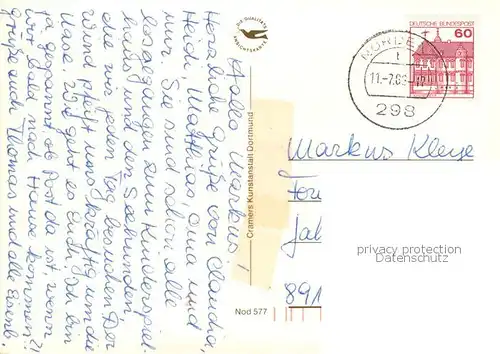 Hallo Markus!
Herzliche Grüße von Claudia,
Heidi, Matthias, Oma und
mir. Sie sind schon alle
losgegangen zum Kinderspiel-
haus und den Seehunden,
die wir jeden Tag besuchen. Der
Wind pfeift uns kräftig um die
Nase. Wie geht es Euch? Ich bin
ja gespannt ob Post da ist, wenn
wir bald nach Hause kommen?!
Grüße auch Thomas und alle Eisenb.
DIE QUALITÄTS
ANSICHTSKARTE
Cramers Kunstanstalt Dortmund
Nod 577
DEUTSCHE BUNDESPOST
60
NORDE
11.-7.8
298
Markus
891
privacy protection
Datenschutz